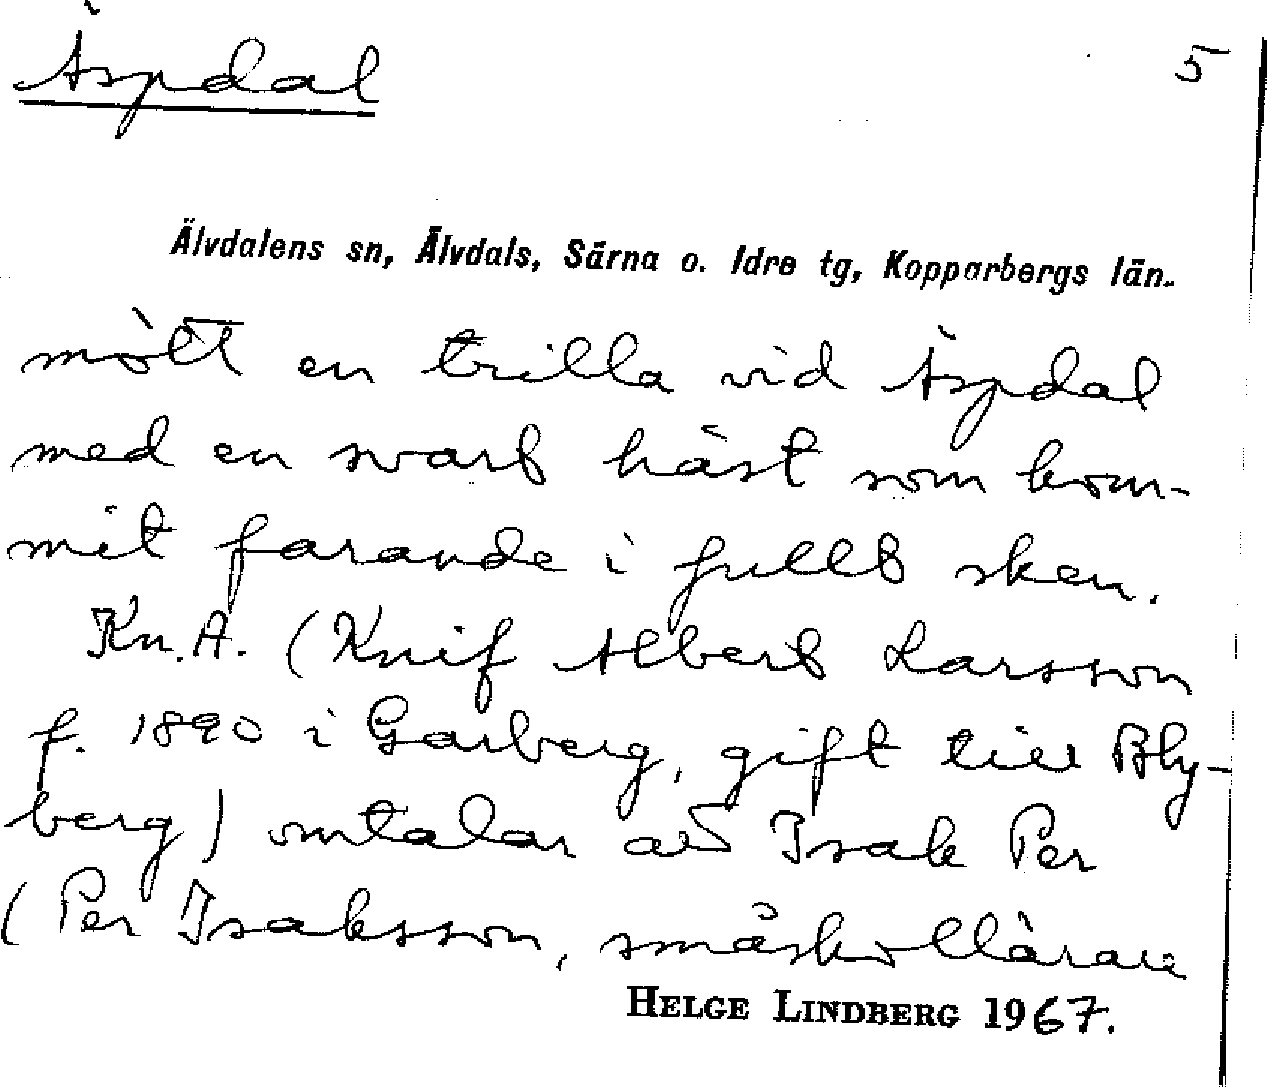 Äspdal 5
Älvdalens sn, Älvdals, Särna o. Idre tg, Kopparbergs län.
mött en trilla vid Äspdal
med en svart häst som kom-
mit farande i fullt sken.
Kn. A. (Knif Albert Larsson
f. 1890 i Garberg, gift till Bly-
berg) omtalar att Isak Per
(Per Isaksson, småskollärare
HELGE LINDBERG 1967.